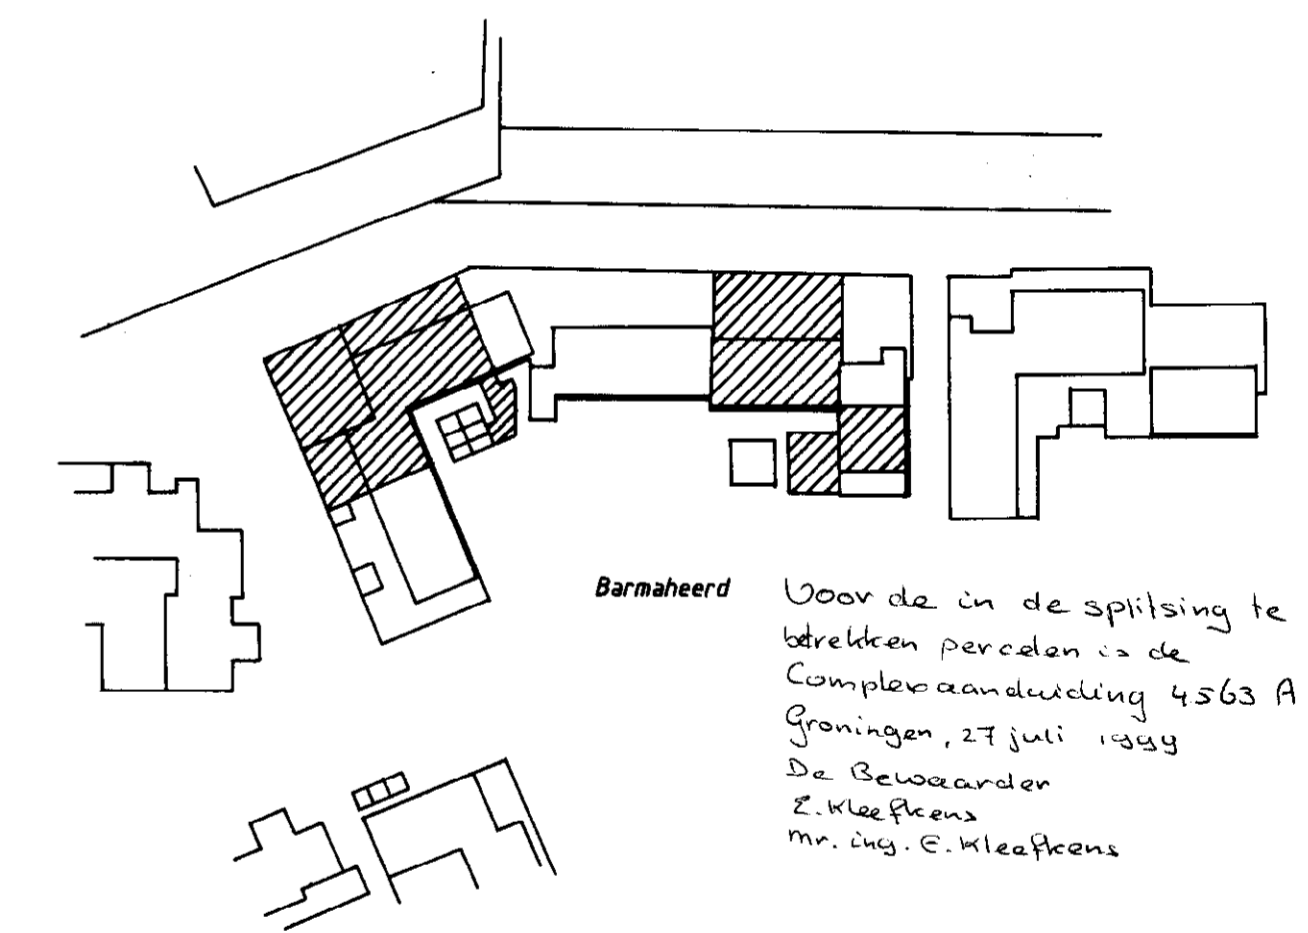 Barmaheerd
Voor de in de splitsing te
betrekken percelen is de
Complexaanduiding 4563 A
Groningen, 27 juli 1999
De Bewaarder
E. Kleefkens
mr. ing. E. Kleefkens